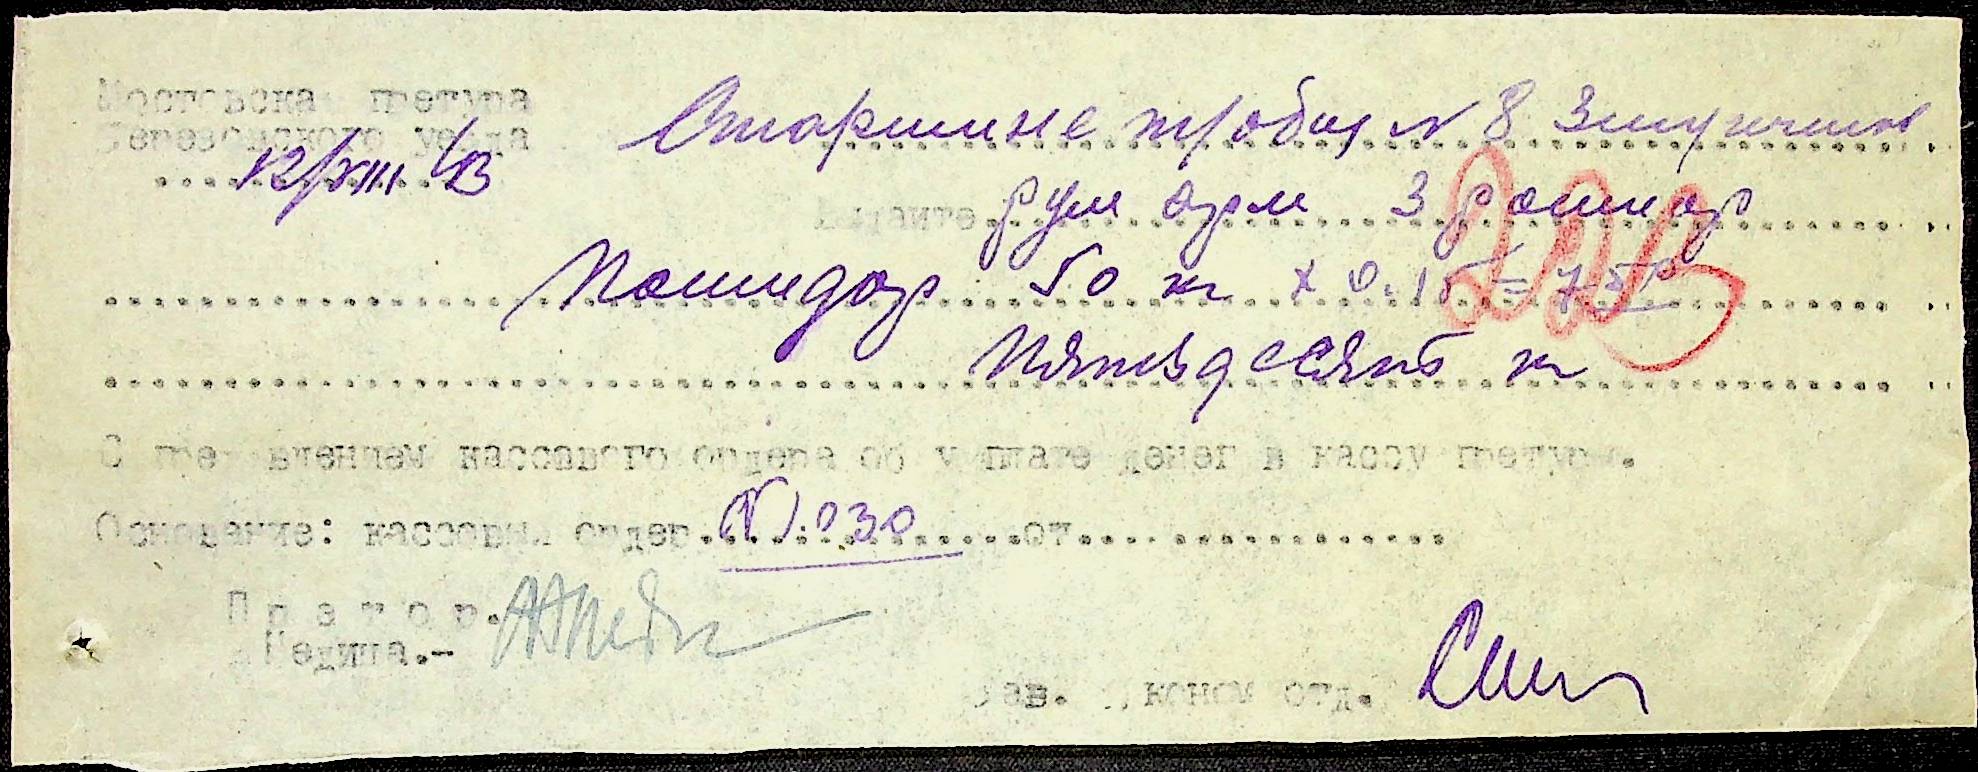 Мостовска претура
Березовского уезда
12/VIII 43
Старшине № 8
Выдайте рум арм 3
Помидор 50 кг х 0.15 = 7.5р
Пятьдесят кг
225
С пред'влением кассового ордера об уплате денег в кассу претуры.
Основание: кассовый ордер N 230 от
Претор.
Медица.-
Зав. Эконом отд.